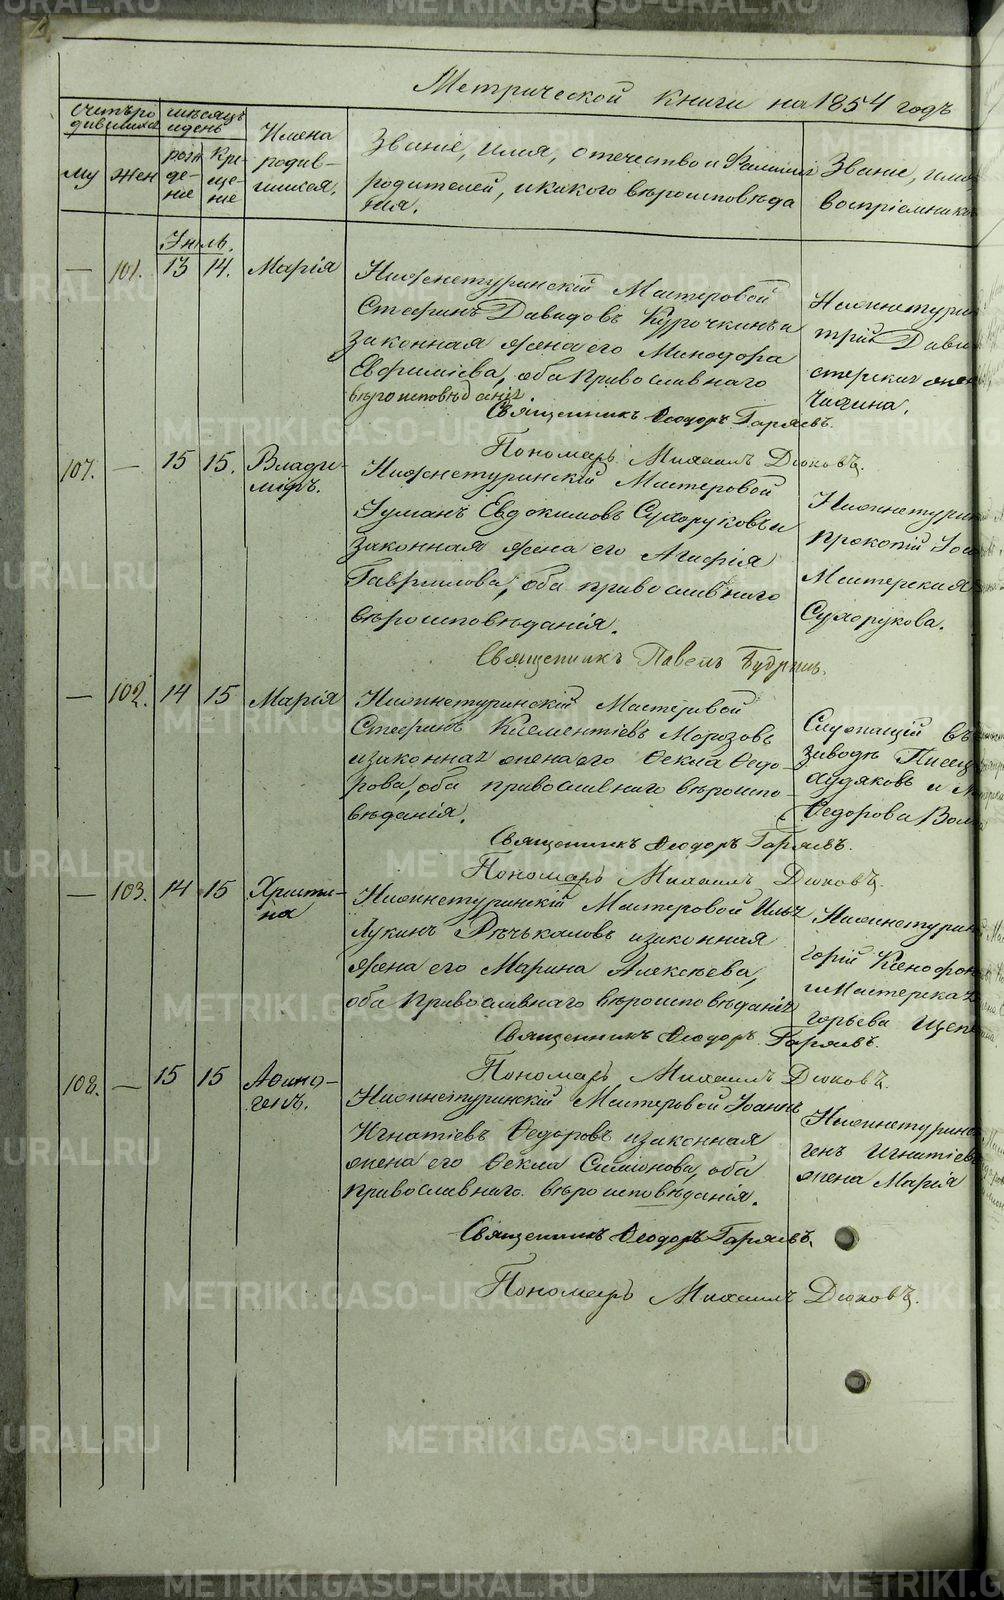 Метрической книги на 1854 годъ
Счетъ ро
дившихся
мѣсяцъ
и день
му
жен
рож
де-
ніе
Кре-
ще-
ніе
Имена
родив-
шихся.
Званіе, имя, отечество и Фамилія
родителей, и какого вѣроисповѣда
нія.
Званіе, имя
воспріемник
Іюль.
— 101. 13 14. Марія
Нижнетуринскій Мастеровой
Стефанъ Давидовъ Курочкинъ и
законная жена его Минодора
Евфиміева, оба православнаго
вѣроисповѣданія
Священникъ Ѳеодоръ Гаряевъ.
Пономарь Михаилъ Дюковъ.
Нижнетурин
трій Дави
стерская жен
107. — 15 15. Влади-
міръ.
Нижнетуринскій Мастеровой
Евдокимовъ Сухоруковъ и
законная жена его Агафія
Гаврилова, оба православнаго
вѣроисповѣданія.
Священникъ Павелъ
Нижнетурин
Прокопій Іоа
Мастерская
Сухорукова.
— 102. 14 15 Марія
Нижнетуринскій Мастеровой
Стефанъ Клементіевъ Морозовъ
и законная жена его Ѳекла Ѳедо-
рова, оба православнаго вѣроиспо-
вѣданія.
Священникъ Ѳеодоръ Гаряевъ.
Пономарь Михаилъ Дюковъ.
Служащій въ
заводѣ Писец
и М
Ѳедорова Вол
— 103. 14 15 Христи-
на
Нижнетуринскій Мастеровой Илья
Лукинъ Рѣчькаловъ и законная
жена его Марина Алексѣева,
оба православнаго вѣроисповѣданія
Священникъ Ѳеодоръ Гаряевъ.
Пономарь Михаилъ Дюковъ.
Нижнетурин
горій Ксенофон
и Мастерская
горьева Щеп
108. — 15 15 Аѳино-
генъ.
Нижнетуринскій Мастеровой Іоаннъ
Игнатіевъ Ѳедоровъ и законная
жена его Ѳекла Симіонова, оба
православнаго вѣроисповѣданія.
Священникъ Ѳеодоръ Гаряевъ.
Пономарь Михаилъ Дюковъ.
Нижнетурин
генъ Игнатіев
жена Марія
METRIKI.GASO-URAL.RU